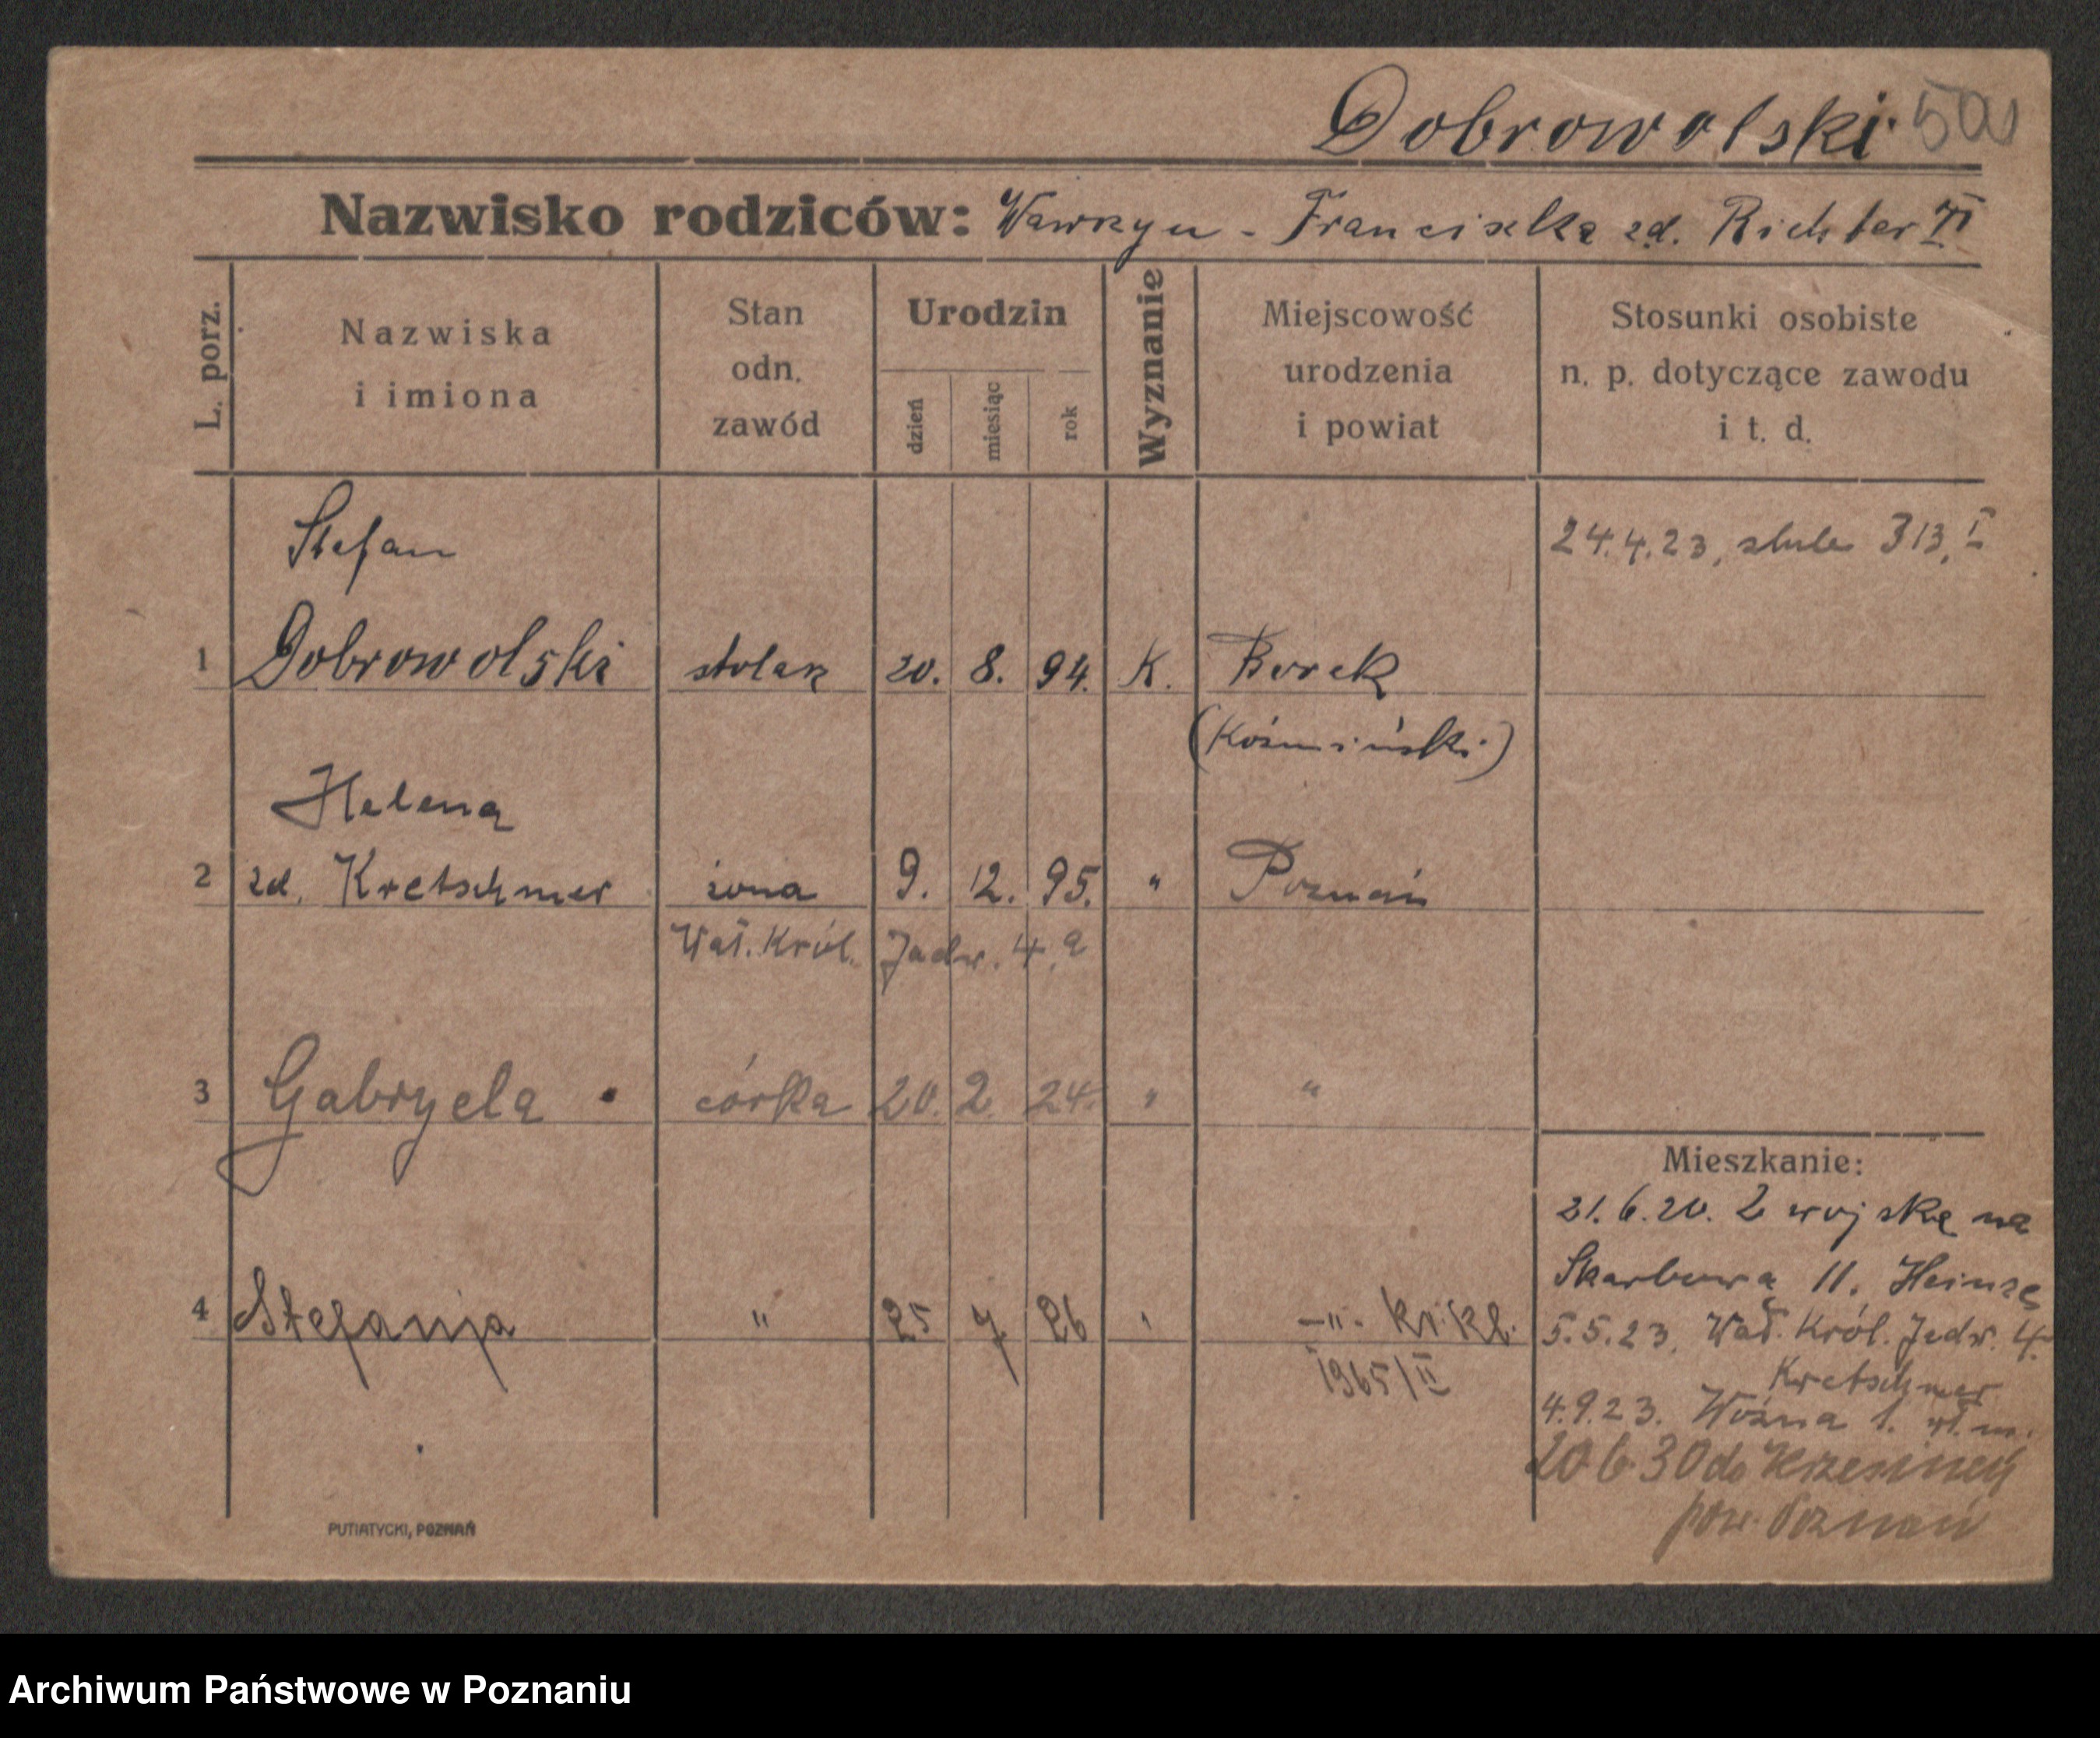 Dobrowolski
Nazwisko rodziców: Wawrzyn - Franciszka zd. Richter VI
L. porz.
Nazwiska
i imiona
Stan
odn.
zawód
Urodzin
dzień
miesiąc
rok
Wyznanie
Miejscowość
urodzenia
i powiat
Stosunki osobiste
n. p. dotyczące zawodu
i t. d.
Stefan
24.4.23, 313, I
1 Dobrowolski stolarz 20. 8. 94. K. Borek
(Koźmiński)
Helena
2 zd. Kretschmer żona 9. 12. 95. " Poznań
Wał. Król. Jadw. 4.a
3 Gabryela córka 20. 2 24. " "
Mieszkanie:
21.6.20. Z wojska na
Skarbowa 11. Heinze
4 Stefanja " 25 7 26 " -"-
5.5.23. Wał. Król. Jadw. 4.
1965/II
Kretschmer
4.9.23. Woźna 1. wł. m.
20 6 30 do Krzesinek
pow. Poznań
PUTIATYCKI, POZNAŃ
Archiwum Państwowe w Poznaniu